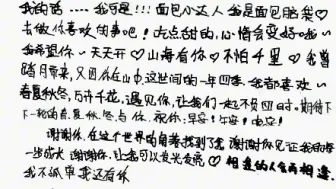 我的话……我可是!!!面包小达人 我是面包脑袋♡
去做你喜欢的事吧!吃点甜的,心情会变好哦~
我希望你~天天开♡山海有你♡不怕千里♡我曾
踏月而来,又因你在山中,这世间的一年四季,我都喜欢~
春夏秋冬,万卉千花,遇见你,让我们一起不负四时。期待下
下一轮的春夏秋冬与你。祝你:早安!午安!晚安!
谢谢你,在这个世界的角落找到了我 谢谢你见证我的每
一步成长 谢谢你,让我可以发光发亮♡ 相逢的人会再相逢
我不孤单我还有你